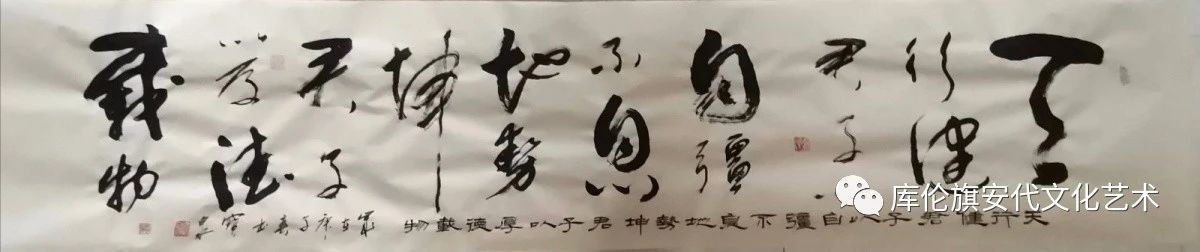 天
行健
君子以
自彊
不息
地勢
坤
君子
以厚德
載物
天行健君子以自彊不息地勢坤君子以厚德載物 歲在庚子
库伦旗安代文化艺术